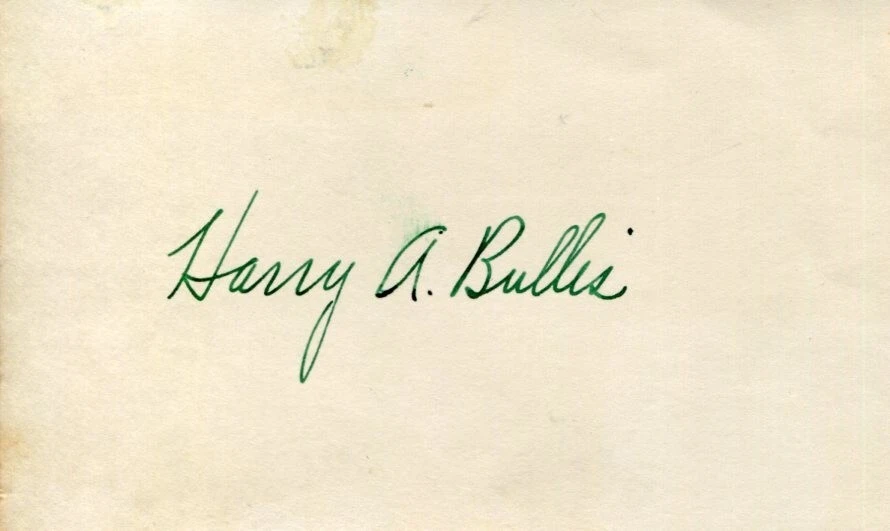 Harry A. Bullis